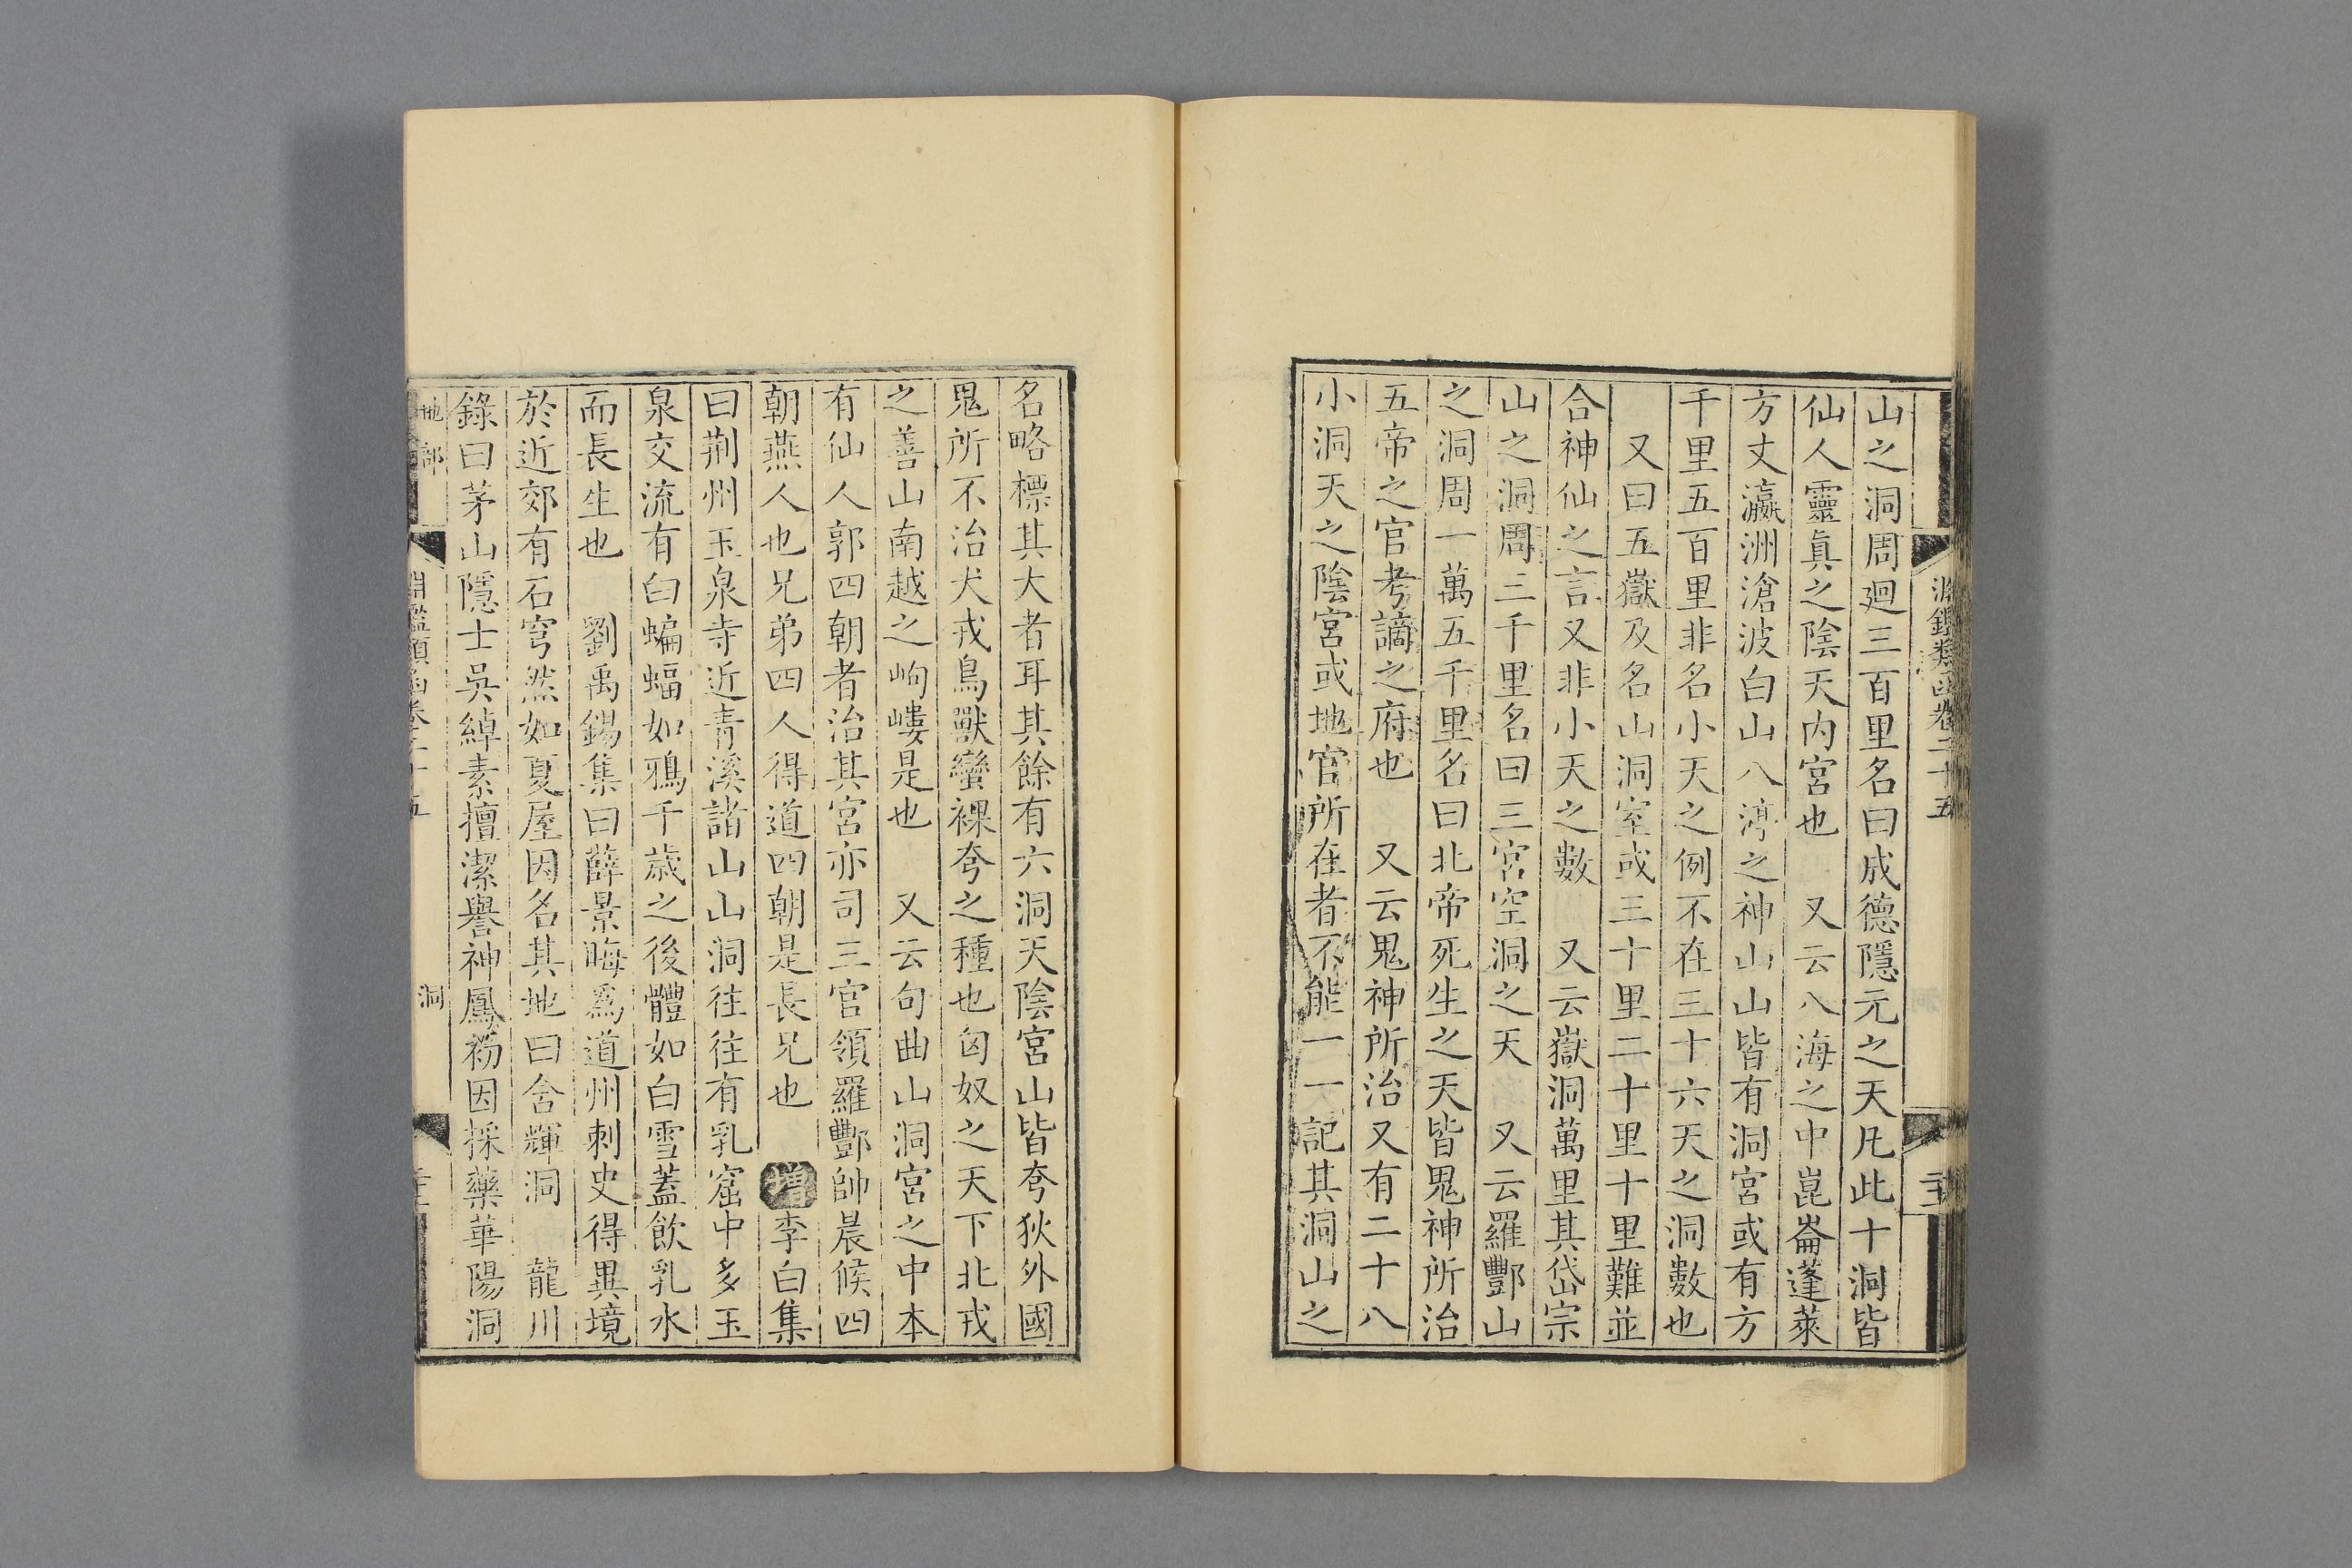 淵鑑類函卷二十五
山之洞周廻三百里名曰成德隱元之天凡此十洞皆
仙人靈眞之陰天内宮也　又云八海之中崑崙蓬萊
方丈瀛洲滄波白山八渟之神山山皆有洞宮或有方
千里五百里非名小天之例不在三十六天之洞數也
又曰五嶽及名山洞室或三十里二十里十里難並
合神仙之言又非小天之數　又云嶽洞萬里其岱宗
山之洞周三千里名曰三宮空洞之天　又云羅酆山
之洞周一萬五千里名曰北帝死生之天皆鬼神所治
五帝之官考謫之府也　又云鬼神所治又有二十八
小洞天之陰宮或地官所在者不能一一記其洞山之
名略標其大者耳其餘有六洞天陰宮山皆夸狄外國
鬼所不治犬戎鳥獸蠻裸夸之種也匈奴之天下北戎
之善山南越之岣嶁是也　又云句曲山洞宮之中本
有仙人郭四朝者治其宮亦司三官領羅酆帥晨候四
朝燕人也兄弟四人得道四朝是長兄也　增李白集
曰荆州玉泉寺近青溪諸山山洞往往有乳窟中多玉
泉交流有白蝙蝠如鴉千歲之後體如白雪蓋飲乳水
而長生也　劉禹錫集曰薛景晦爲道州刺史得異境
於近郊有石穹然如夏屋因名其地曰含輝洞　龍川
錄曰茅山隱士吳綽素擅潔譽神鳳初因採藥華陽洞
地部
淵鑑類函卷二十五
洞